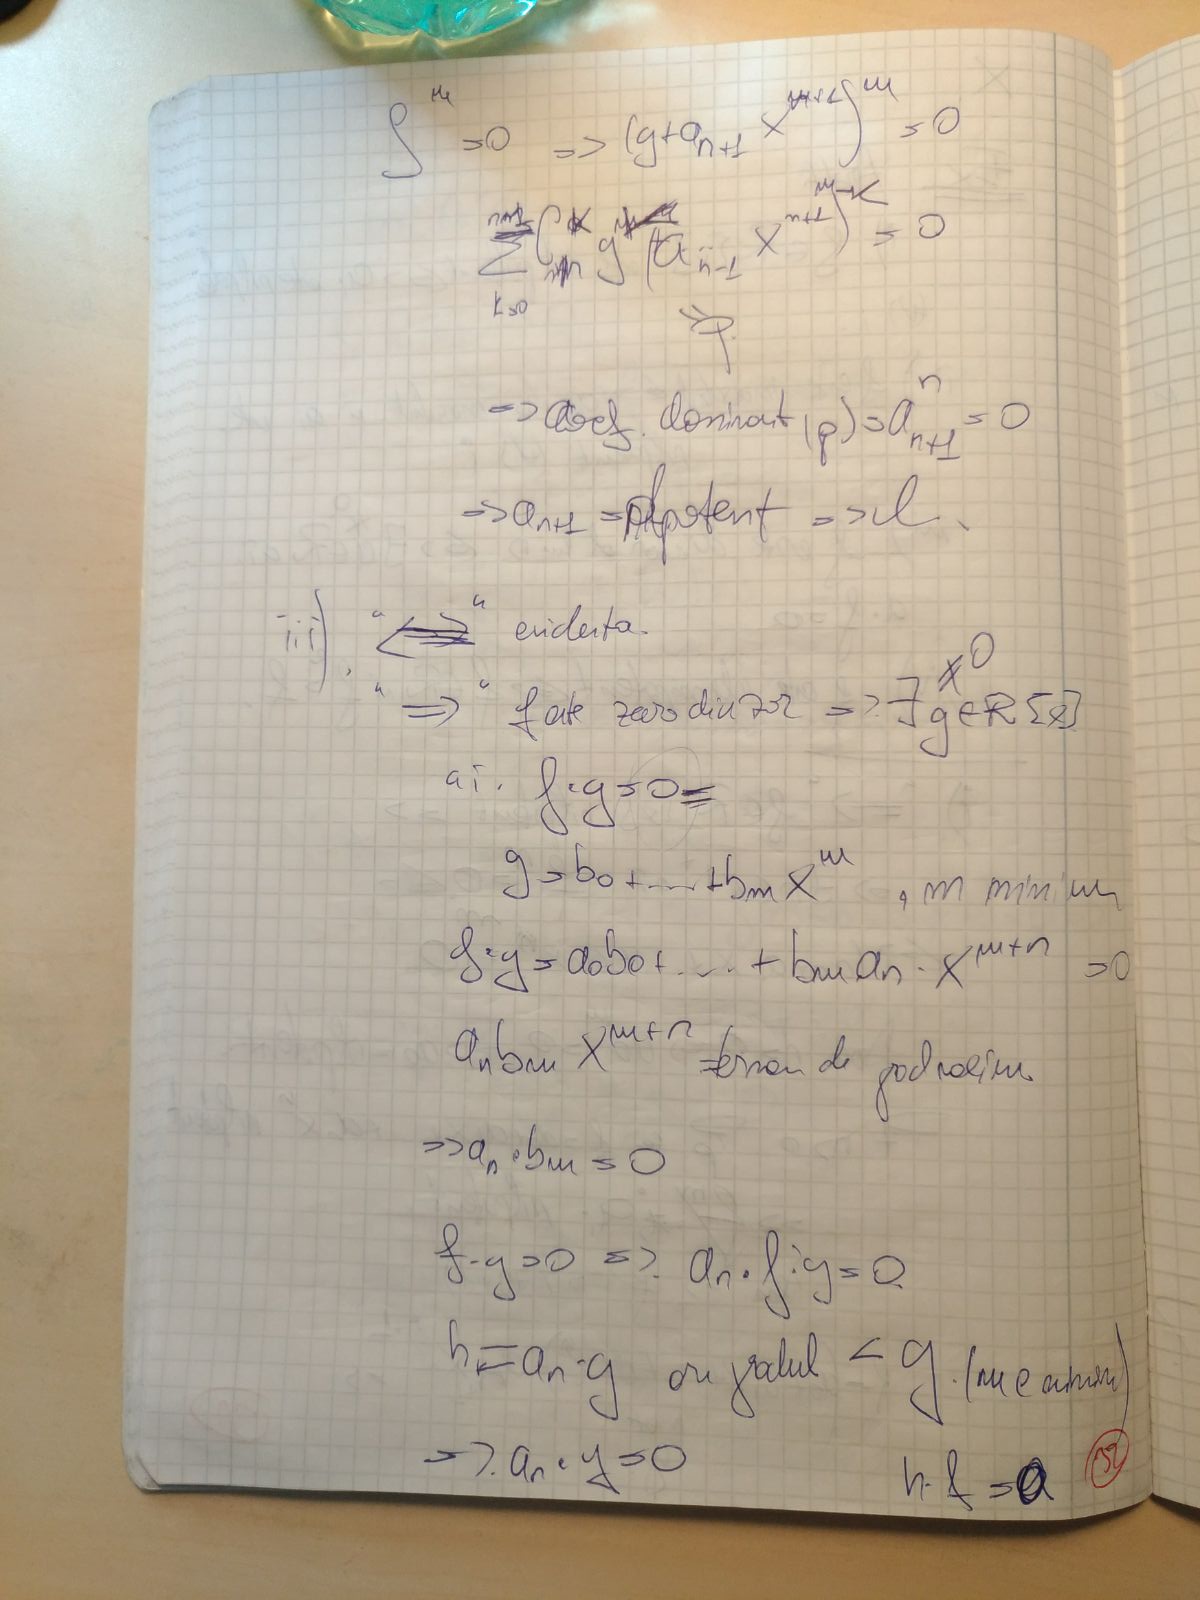 f^m = 0 => (g + a_{n+1} X^{n+1})^m = 0
∑_{k=0} C_m^k g^k (a_{n-1} X^{n+1})^{m-K} = 0
=> coef. dominant (p) = a_{n+1}^n = 0
=> a_{n+1} = nilpotent =>
iii). "<=" evidenta.
"=>" f este zero divizor => ∃ g ∈ R[X] ≠ 0
aî. f·g = 0
g = b0 + .... + bm X^m , m minim
f·g = a0b0 + .... + bm an · X^{m+n} = 0
an bm X^{m+n} termen de grad maxim
=> an · bm = 0
f·g = 0 => an · f · g = 0
h = an · g are gradul < g. (nu e minim)
=> an · g = 0 h·f = 0